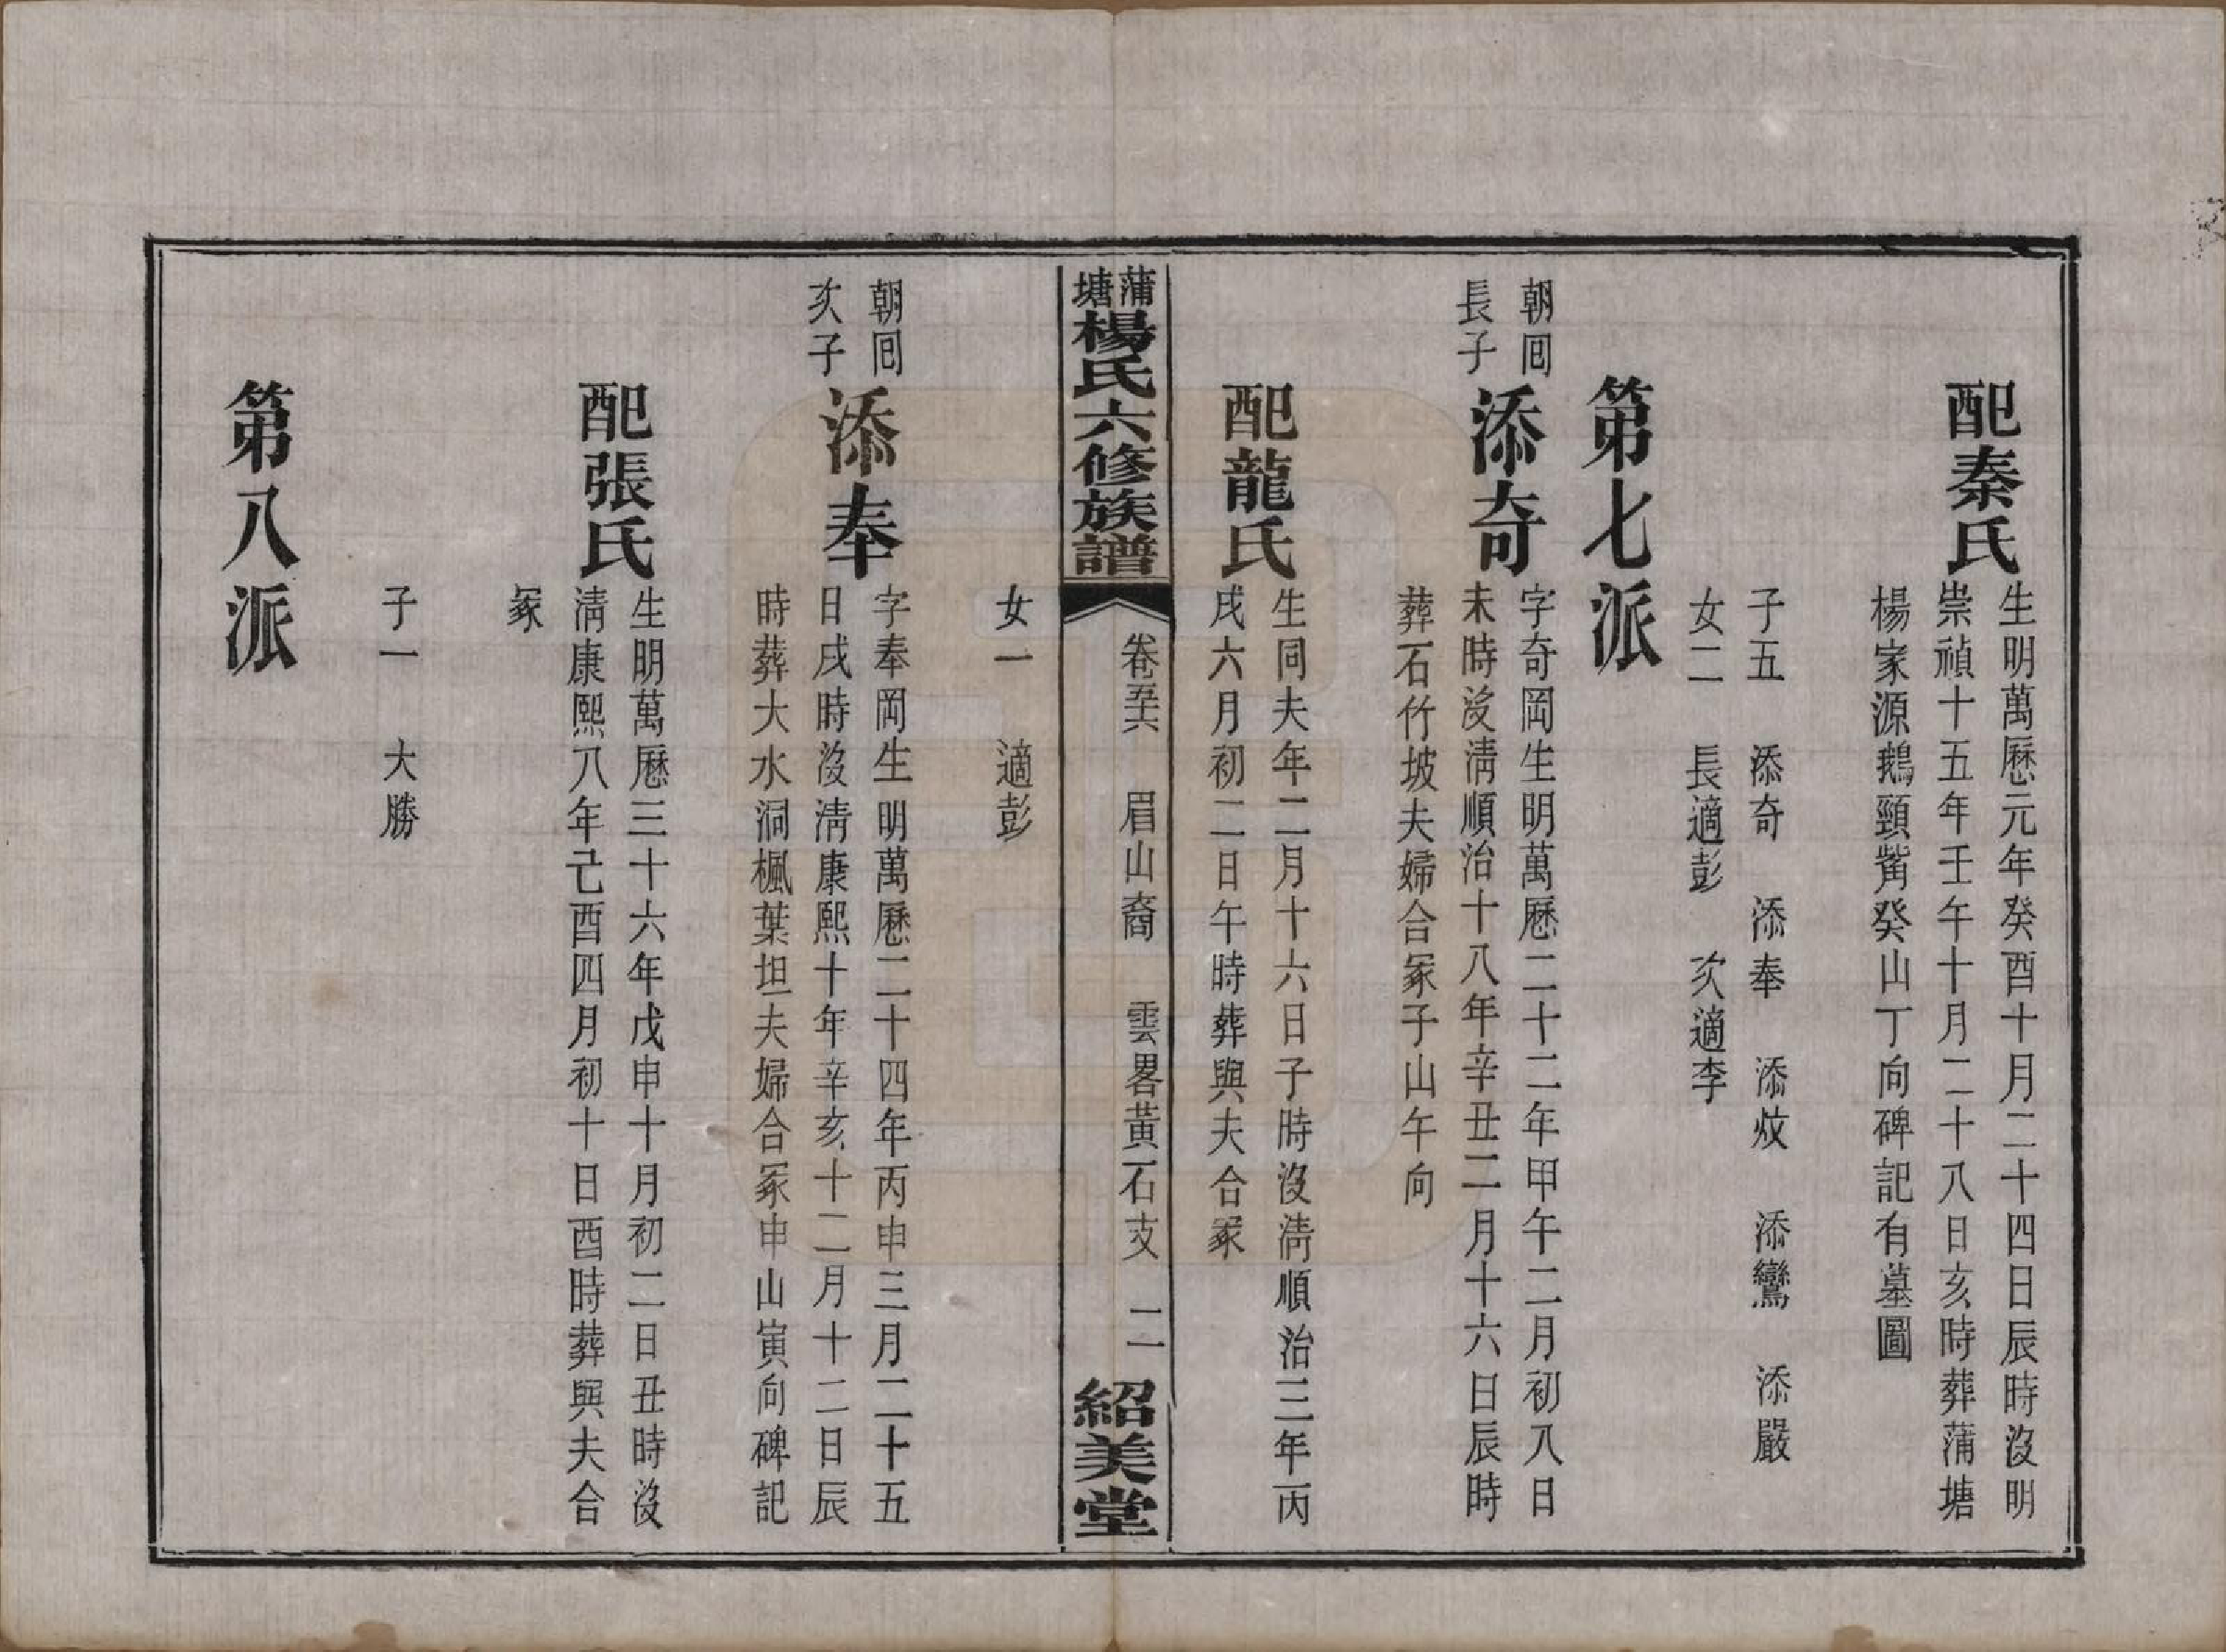 配秦氏
生明萬厯元年癸酉十月二十四日辰時沒明
崇禎十五年壬午十月二十八日亥時葬蒲塘
楊家源鵝頸觜癸山丁向碑記有墓圖
子五　添奇　添奉　添㚻　添鸞　添嚴
女二　長適彭　次適李
第七派
朝囘
長子
添奇
字奇岡生明萬厯二十二年甲午二月初八日
未時沒淸順治十八年辛丑二月十六日辰時
葬石竹坡夫婦合冢子山午向
配龍氏
生同夫年二月十六日子時沒淸順治三年丙
戌六月初二日午時葬與夫合冢
蒲塘楊氏六修族譜
卷五六　眉山裔　雲畧黃石支　二
紹美堂
女一　適彭
朝囘
次子
添奉
字奉岡生明萬厯二十四年丙申三月二十五
日戌時沒淸康熙十年辛亥十二月十二日辰
時葬大水洞楓葉坦夫婦合冢申山寅向碑記
配張氏
生明萬厯三十六年戊申十月初二日丑時沒
淸康熙八年己酉四月初十日酉時葬與夫合
冢
子一　大勝
第八派